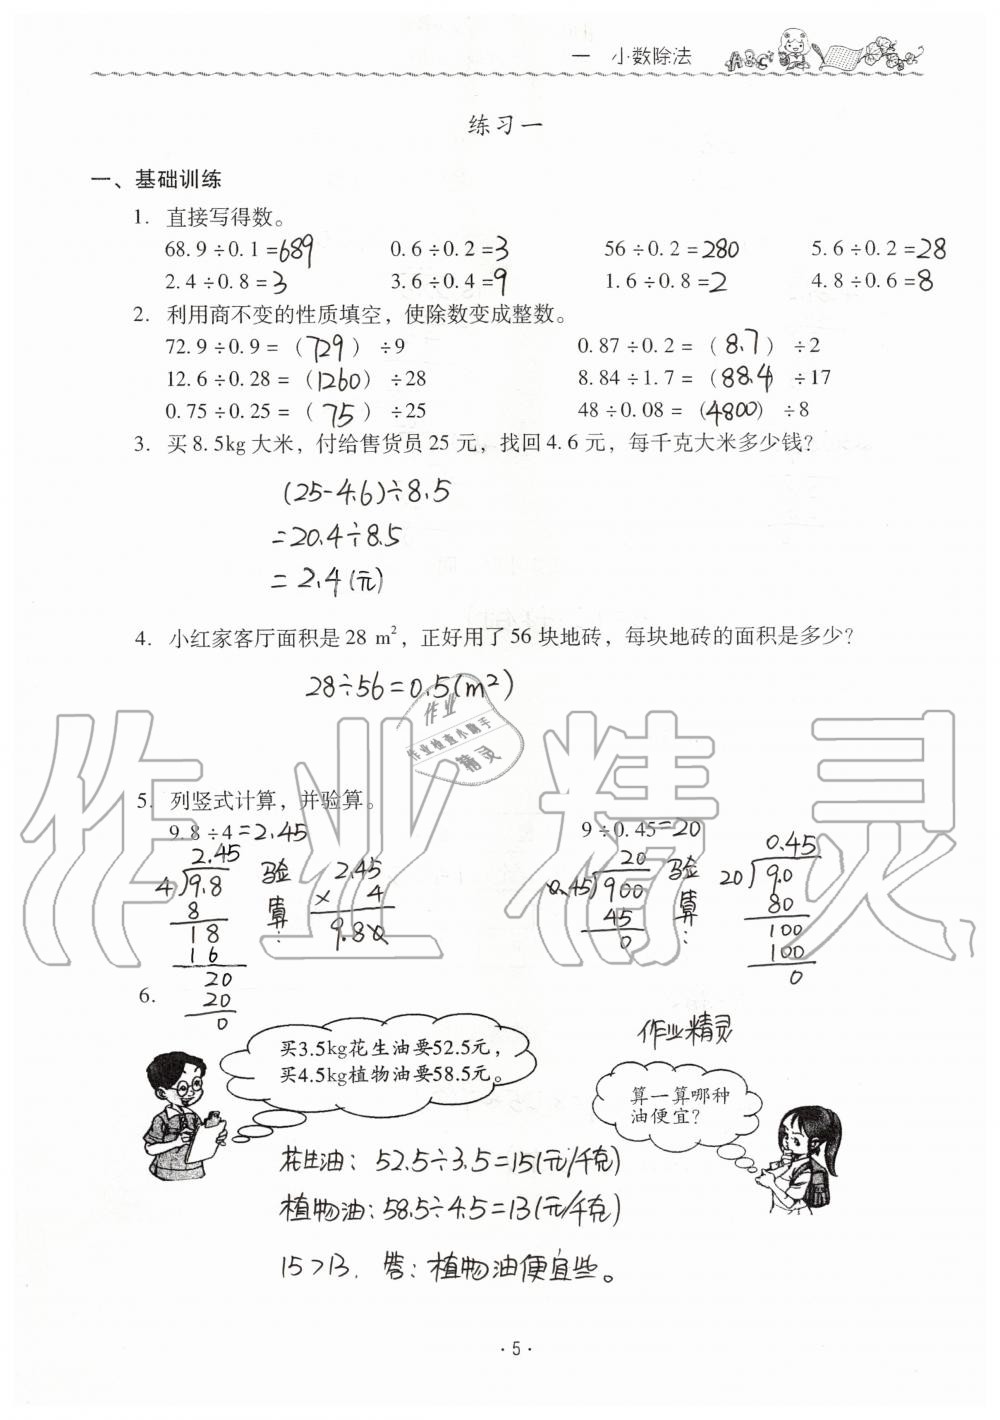 一 小数除法
ABC
练习一
一、基础训练
1. 直接写得数。
68.9÷0.1=689 0.6÷0.2=3 56÷0.2=280 5.6÷0.2=28
2.4÷0.8=3 3.6÷0.4=9 1.6÷0.8=2 4.8÷0.6=8
2. 利用商不变的性质填空，使除数变成整数。
72.9÷0.9=(729)÷9 0.87÷0.2=(8.7)÷2
12.6÷0.28=(1260)÷28 8.84÷1.7=(88.4)÷17
0.75÷0.25=(75)÷25 48÷0.08=(4800)÷8
3. 买8.5kg大米，付给售货员25元，找回4.6元，每千克大米多少钱？
(25-4.6)÷8.5
=20.4÷8.5
=2.4(元)
4. 小红家客厅面积是28 m²，正好用了56块地砖，每块地砖的面积是多少？
28÷56=0.5(m²)
作业
作业检查小助手
精灵
作业精灵
5. 列竖式计算，并验算。
9.8÷4=2.45 9÷0.45=20
2.45
4)9.8
8
18
16
20
20
0
验算：
2.45
× 4
9.80
20
0.45)900
45
0
验算：
0.45
20)9.0
80
100
100
0
6.
买3.5kg花生油要52.5元，
买4.5kg植物油要58.5元。
作业精灵
算一算哪种
油便宜？
花生油：52.5÷3.5=15(元/千克)
植物油：58.5÷4.5=13(元/千克)
15>13. 答：植物油便宜些。
·5·